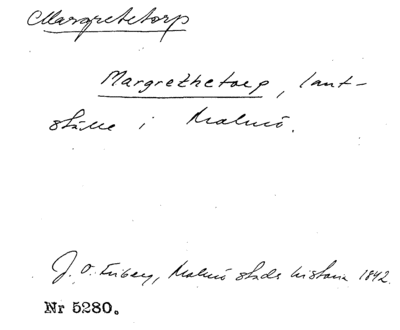 Margretetorp
Margrethetorp, lant-
ställe i Malmö.
J. O. Friberg, Malmö stads historia 1842.
Nr 5280.